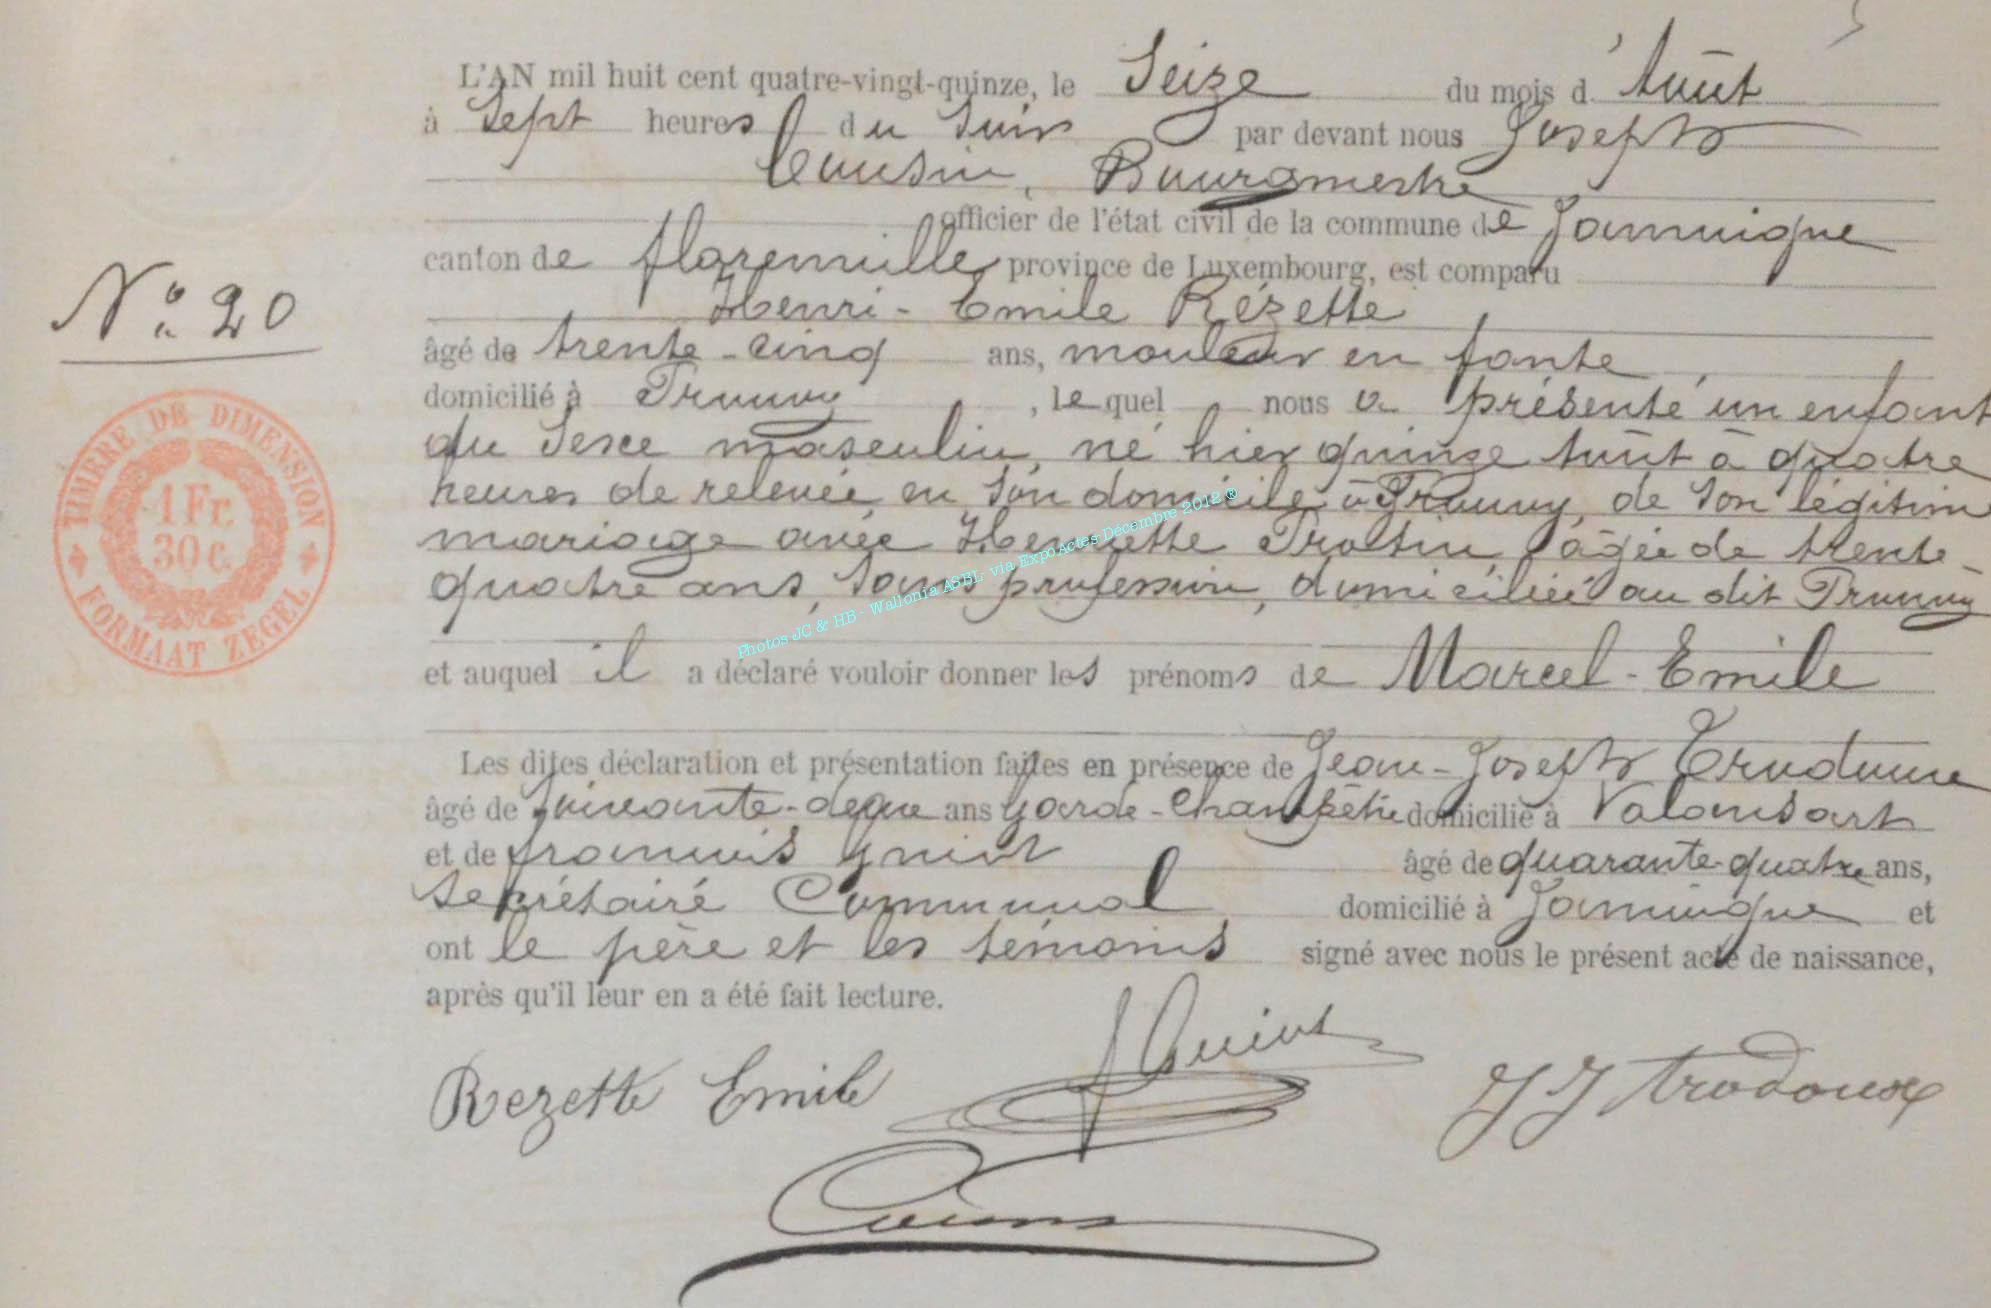 L'AN mil huit cent quatre-vingt-quinze, le Seize du mois d'Août
à Sept heures du Soir par devant nous Joseph
Cousin, Bourgmestre
officier de l'état civil de la commune de Jamoigne
canton de florenville province de Luxembourg, est comparu
Henri-Emile Rézette
N° 20
âgé de trente-cinq ans, mouleur en fonte,
domicilié à Prouvy, lequel nous a présenté un enfant
du Sexe masculin, né hier quinze Août à quatre
heures de relevée en Son domicile à Prouvy, de Son légitime
mariage avec Henriette Protin, âgée de trente-
quatre ans, Sans profession, domiciliée au dit Prouvy
et auquel il a déclaré vouloir donner les prénoms de Marcel-Emile
Les dites déclaration et présentation faites en présence de Jean-Joseph
âgé de Soixante-deux ans garde-Champêtre domicilié à Valansart
et de francois Guiot âgé de quarante-quatre ans,
Secrétaire Communal, domicilié à Jamoigne et
ont le père et les témoins signé avec nous le présent acte de naissance,
après qu'il leur en a été fait lecture.
Rezette Emile
f Guiot
J J trodoux
Cousin
TIMBRE DE DIMENSION
1 Fr.
30 c.
FORMAAT ZEGEL
Photos JC & HB - Wallonia ASBL via ExpoActes Décembre 2012 ®